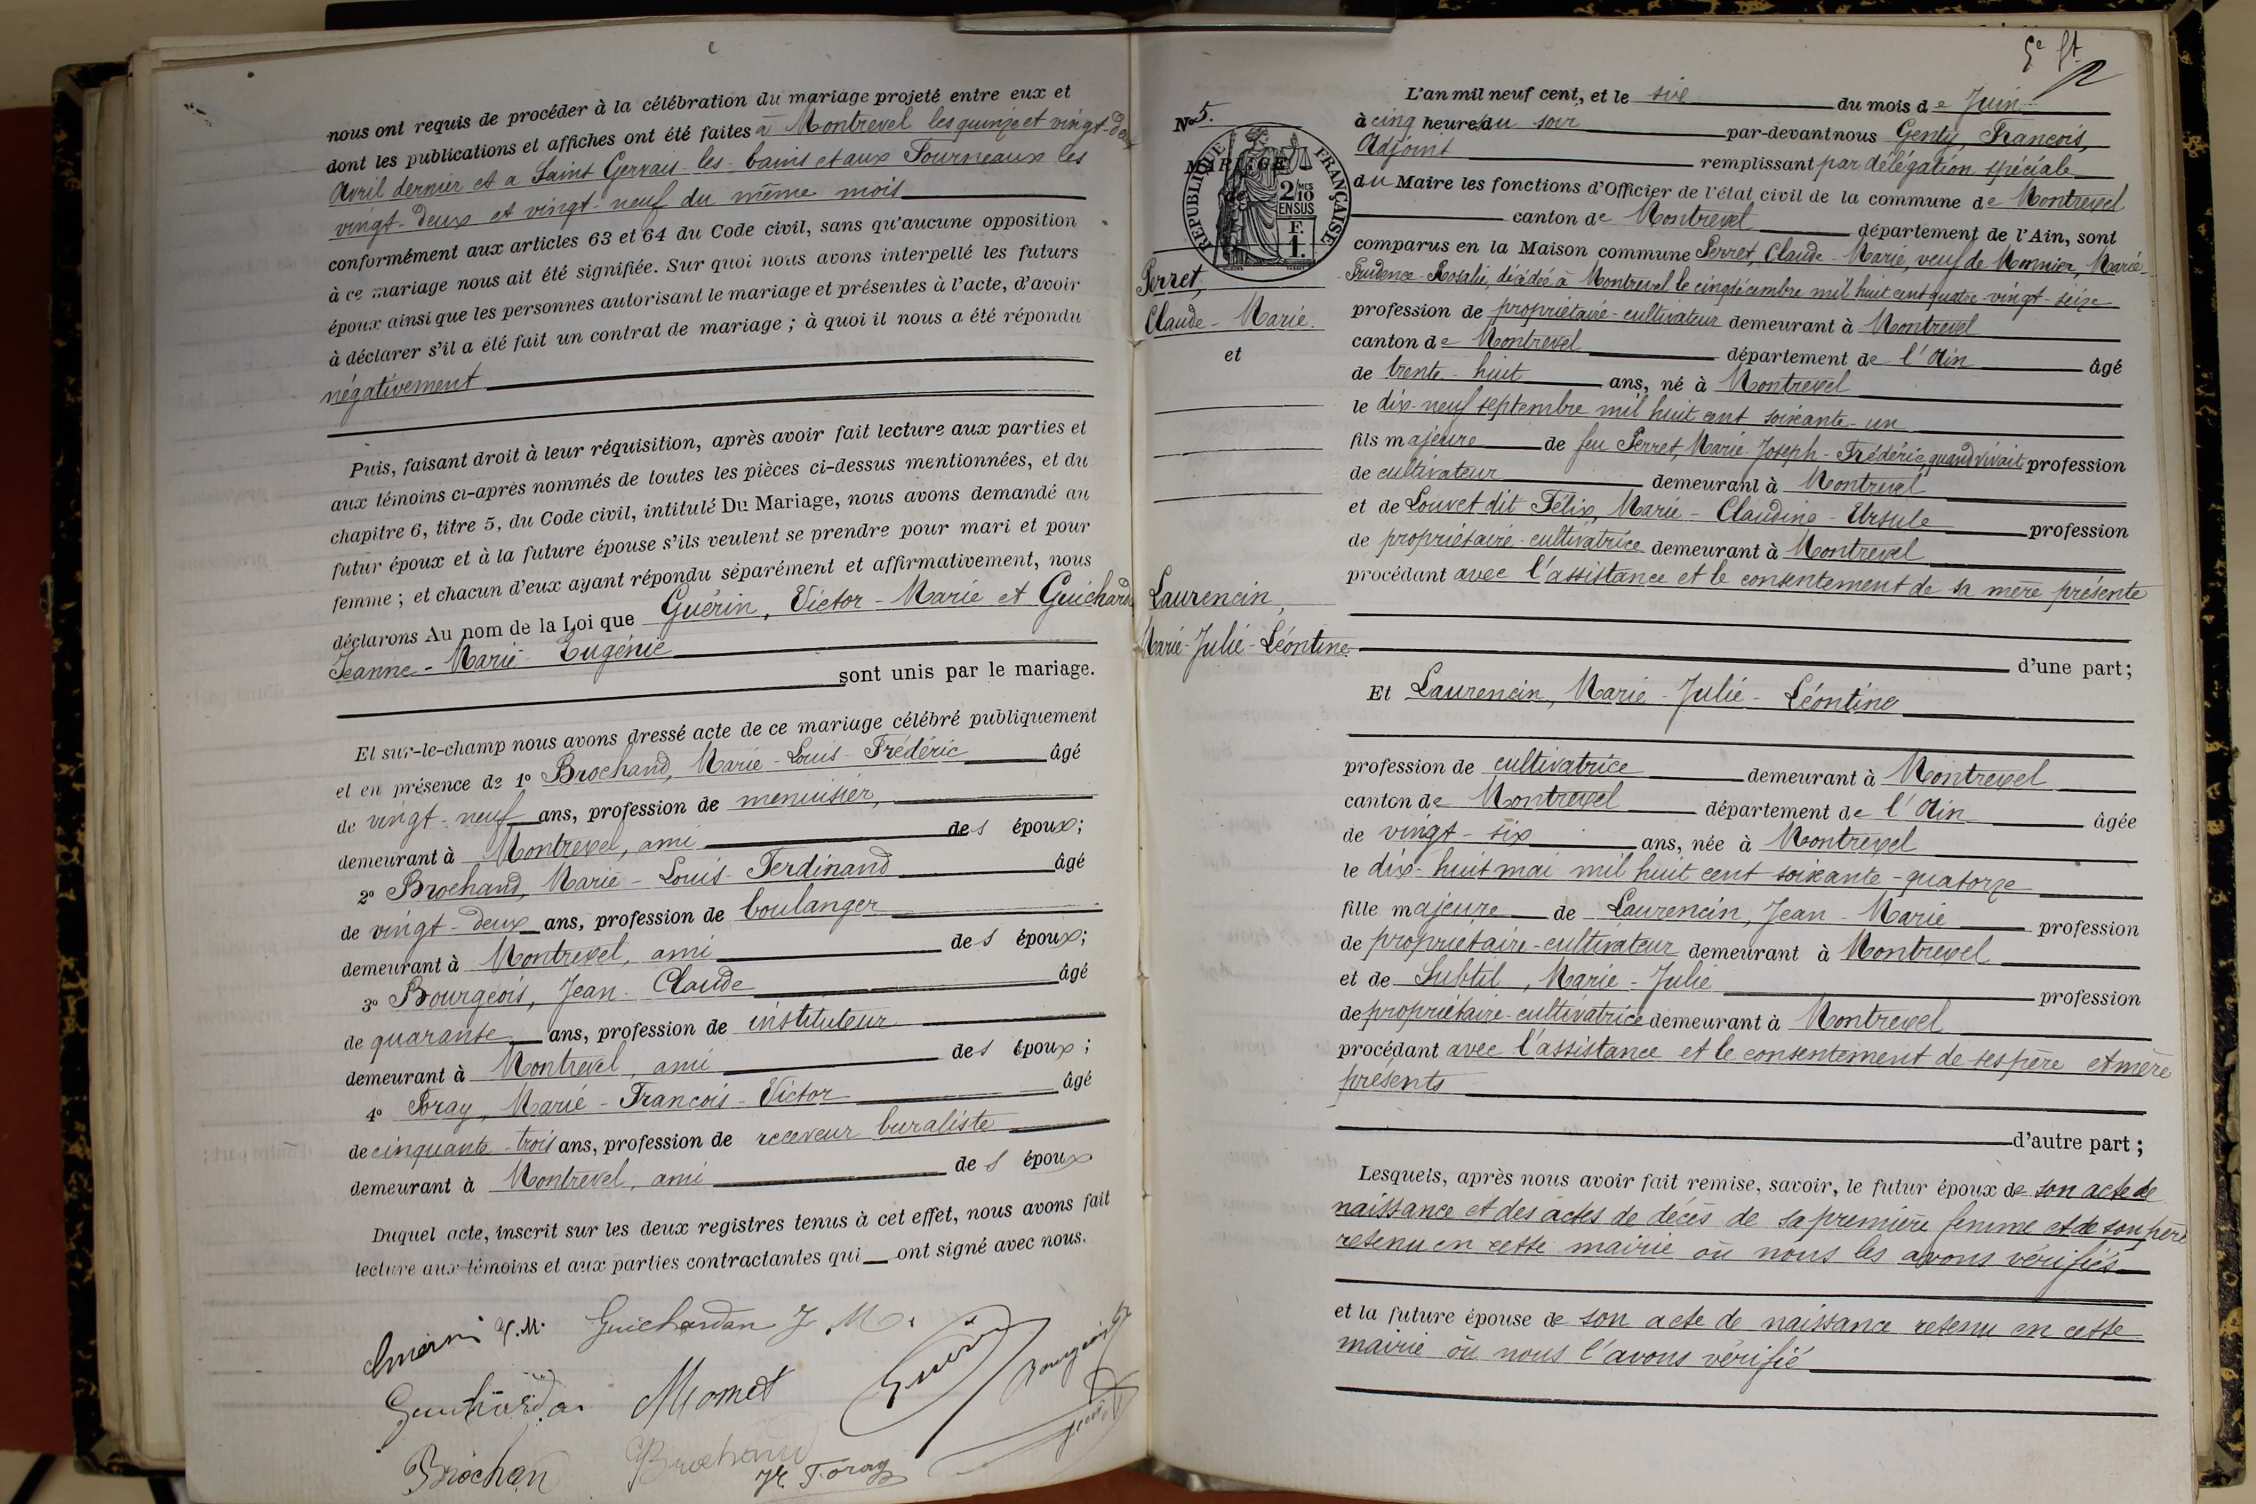 nous ont requis de procéder à la célébration du mariage projeté entre eux et
dont les publications et affiches ont été faites à Montrevel les quinze et vingt-deux
Avril dernier et a Saint Gervais-les-bains et aux Fourneaux les
vingt-deux et vingt-neuf du même mois
conformément aux articles 63 et 64 du Code civil, sans qu'aucune opposition
à ce mariage nous ait été signifiée. Sur quoi nous avons interpellé les futurs
époux ainsi que les personnes autorisant le mariage et présentes à l'acte, d'avoir
à déclarer s'il a été fait un contrat de mariage ; à quoi il nous a été répondu
négativement
Puis, faisant droit à leur réquisition, après avoir fait lecture aux parties et
aux témoins ci-après nommés de toutes les pièces ci-dessus mentionnées, et du
chapitre 6, titre 5, du Code civil, intitulé Du Mariage, nous avons demandé au
futur époux et à la future épouse s'ils veulent se prendre pour mari et pour
femme ; et chacun d'eux ayant répondu séparément et affirmativement, nous
déclarons Au nom de la Loi que Guérin, Victor-Marie et Guichardan
Jeanne-Marie-Eugénie
sont unis par le mariage.
Et sur-le-champ nous avons dressé acte de ce mariage célébré publiquement
et en présence de 1º Brochand, Marie-Louis-Frédéric âgé
de vingt-neuf ans, profession de menuisier,
demeurant à Montrevel, ami des époux;
2º Brochand, Marie-Louis-Ferdinand âgé
de vingt-deux ans, profession de boulanger
demeurant à Montrevel, ami des époux;
3º Bourgeois, Jean-Claude âgé
de quarante ans, profession de instituteur
demeurant à Montrevel, ami des époux;
4º Foray, Marie-François-Victor âgé
de cinquante-trois ans, profession de receveur buraliste
demeurant à Montrevel, ami des époux
Duquel acte, inscrit sur les deux registres tenus à cet effet, nous avons fait
lecture aux témoins et aux parties contractantes qui ont signé avec nous.
Guichardan J M.
Brochan
Brochand
Foray
5e ft
Nº 5.
MARIAGE
de
RÉPUBLIQUE FRANÇAISE
2/10 MES
EN SUS
F.
1.
Perret,
Claude-Marie.
et
Laurencin,
Marie-Julie-Léontine.
L'an mil neuf cent, et le six du mois de Juin
à cinq heures du soir par-devant nous Genty, François,
Adjoint remplissant par délégation spéciale
du Maire les fonctions d'Officier de l'état civil de la commune de Montrevel
canton de Montrevel département de l'Ain, sont
comparus en la Maison commune Perret, Claude-Marie, veuf de Monnier, Marie-
Prudence-Rosalie, décédée à Montrevel le cinq décembre mil huit cent quatre-vingt-seize
profession de propriétaire-cultivateur demeurant à Montrevel
canton de Montrevel département de l'Ain âgé
de trente-huit ans, né à Montrevel
le dix-neuf septembre mil huit cent soixante-un
fils majeure de feu Perret, Marie-Joseph-Frédéric, quand vivait profession
de cultivateur demeurant à Montrevel
et de Louvet dit Félix, Marie-Claudine-Ursule profession
de propriétaire-cultivatrice demeurant à Montrevel
procédant avec l'assistance et le consentement de sa mère présente
d'une part;
Et Laurencin, Marie-Julie-Léontine
profession de cultivatrice demeurant à Montrevel
canton de Montrevel département de l'Ain âgée
de vingt-six ans, née à Montrevel
le dix-huit mai mil huit cent soixante-quatorze
fille majeure de Laurencin, Jean-Marie profession
de propriétaire-cultivateur demeurant à Montrevel
et de Subtil, Marie-Julie profession
de propriétaire-cultivatrice demeurant à Montrevel
procédant avec l'assistance et le consentement de ses père et mère
présents
d'autre part ;
Lesquels, après nous avoir fait remise, savoir, le futur époux de son acte de
naissance et des actes de décès de sa première femme et de son père
retenu en cette mairie où nous les avons vérifiés
et la future épouse de son acte de naissance retenu en cette
mairie où nous l'avons vérifié